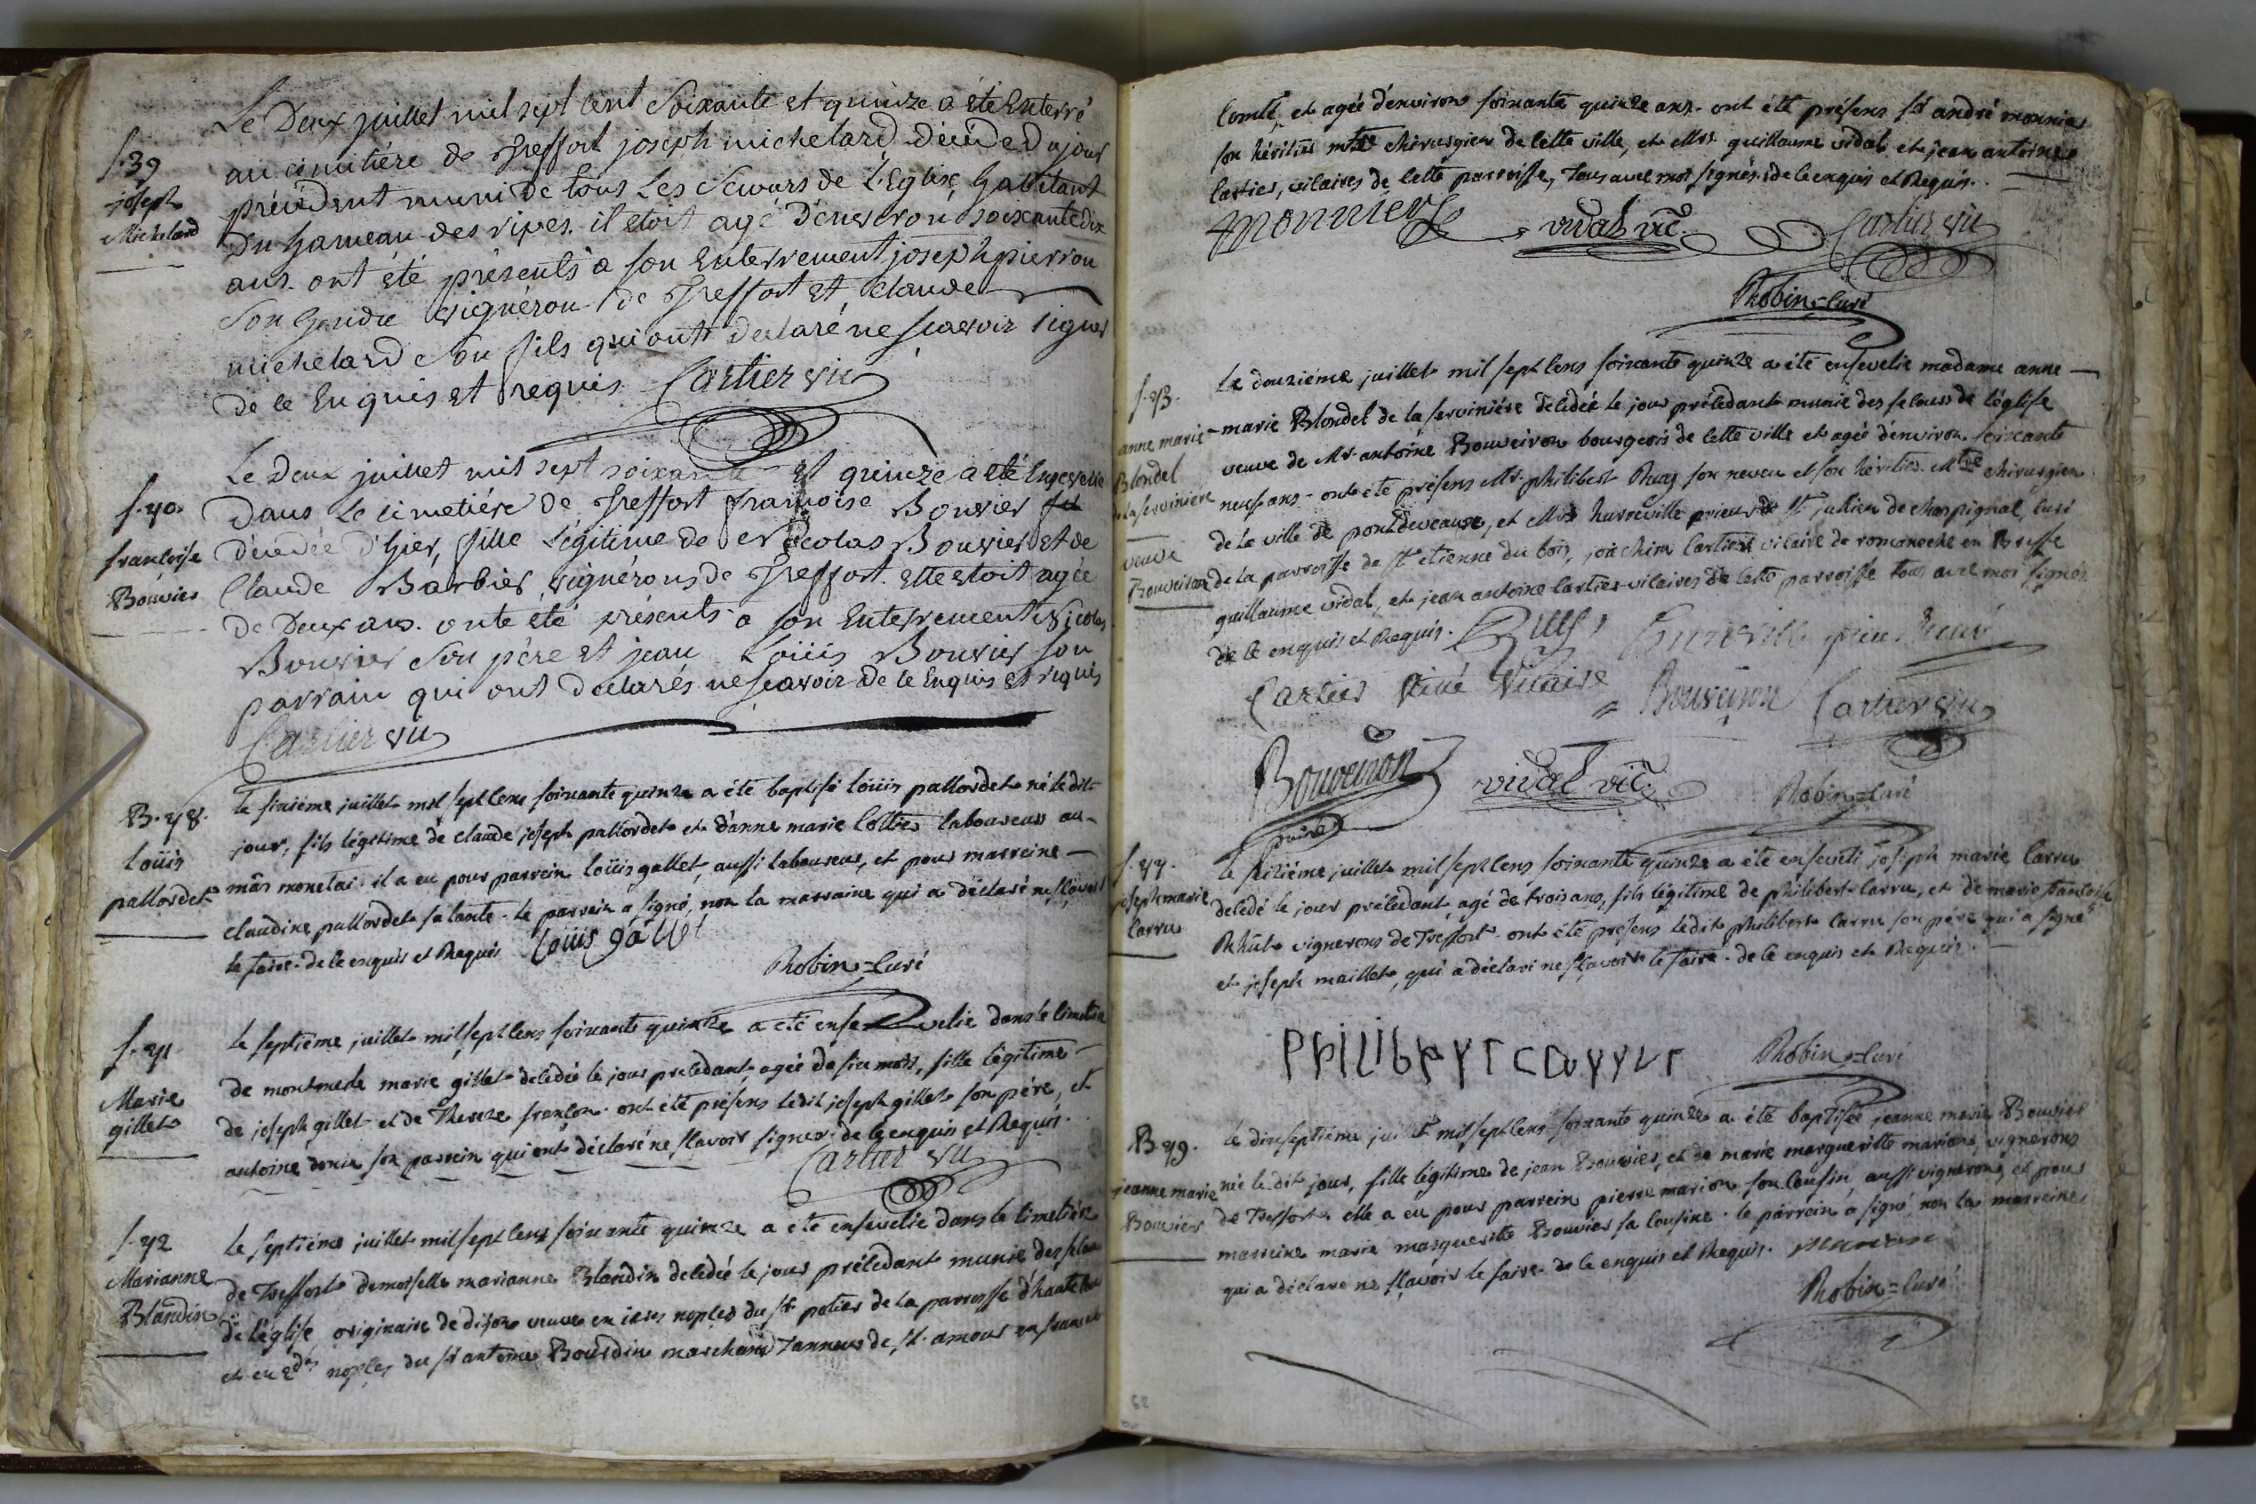 Le Deux juillet mil sept cent Soixante et quinze a été Enterré
S. 39
joseph
Michelard
au cimitiére de Treffort joseph michelard décédé Dujour
précédent muni de tous Les Secours de L'Eglise, habitant
Du hameau des ripes. il etoit agé D'environ soixante dix
ans. ont été présents a son Enterrement joseph pierron
Son Gendre vigneron de Treffort et Claude
michelard Son fils qui ont declaré ne scavoir signer
de ce Enquis et requis Cartier vic
S. 40.
francoise
Bouvier
Le Deux juillet mil sept soixante et quinze a été Ensevelie
Dans Le cimetiére de Treffort françoise Bouvier
décédée d'hier, fille Légitime de Nicolas Bouvier et de
Claude Barbier, vignérons de Treffort. elle etoit agée
de Deux ans. onte été présents a son Enterrement Nicolas
Bouvier son père et jean Loüis Bouvier son
parrain qui ont declarés ne scavoir de ce Enquis et requis
Cartier vic
B. 48.
Loüis
pallordet
le sixiéme juillet mil sept cens soixante quinze a été baptisé loüis pallordet né le dit
jour, fils légitime de claude joseph pallordet et d'anne marie cottier laboureurs au
mâs monetai. il a eu pour parrein loüis gallet, aussi laboureur, et pour marreine
claudine pallordet sa tante. le parrein a signé, non la marraine qui a déclaré ne sçavoir
le faire. de ce enquis et Requis Loüis gallet
Robin = curé
S. 41
Marie
gillet
le septiéme juillet mil sept cens soixante quinze a été ensevelie dans le cimetiere
de montmerle marie gillet decedée le jour precedant, agée de six mois, fille légitime
de joseph gillet et de Therese françon. ont été présens ledit joseph gillet son pére, et
antoine donin son parrein qui ont déclaré ne sçavoir signer. de ce enquis et Requis.
Cartier vic
S. 42
Marianne
Blandin
le septiéme juillet mil sept cens soixante quinze a été ensevelie dans le cimetière
de Treffort demoiselle marianne Blandin decedée le jour précédant munie des secours
de l'église originaire de dijon veuve en 1eres nopces du Sr potier de la parroisse d'haute
et en 2des nopces du Sr antoine Bourdin marchand Tanneur de St. amour en franche
Comté, et agée d'environ soixante quinze ans. ont été présens Sr andré monnier
son héritier mtre chirurgien de cette ville, et Mrs. guillaume vidal et jean antoine
Cartier, vicaires de cette parroisse, Tous avec moi signés. de ce enquis et Requis.
Monnier vidal vic. Cartier vic
Robin = curé
S. 43.
anne marie
Blondel
la serviniére
veuve
Bouveiron
Le douziéme juillet mil sept cens soixante quinze a été ensevelie madame anne
marie Blondel de la serviniére decedée le jour précédant munie des secours de l'église
veuve de Mr. antoine Bouveiron bourgeois de cette ville et agée d'environ soixante
neuf ans. ont été présens Mr. philibert son neveu et son héritier Mtre chirurgien
de la ville de pontdevaux, et Mrs hurreville prieur de St julien de charpignat curé
de la parroisse de St etienne du bois, joachim Cartier vicaire de romaneche en Bresse
guillaume vidal, et jean antoine cartier vicaires de cette parroisse tous avec moi signés
de ce enquis et Requis. prieur curé
Cartier vicaire Bouveiron Cartier vic
Bouveiron vidal vic. Robin = curé
S. 44.
joseph marie
Carru
le seiziéme juillet mil sept cens soixante quinze a été enseveli joseph marie Carru
décédé le jour précédant, agé de trois ans, fils légitime de philibert Carru, et de marie françoise
vignerons de Treffort. ont été présens ledit philibert Carru son pére qui a signé
et joseph maillet, qui a déclaré ne sçavoir le faire. de ce enquis et Requis.
Robin = curé
B. 49.
jeanne marie
Bouvier
le dixseptiéme juillet mil sept cens soixante quinze a été baptisée jeanne marie Bouvier
née le dit jour, fille légitime de jean Bouvier, et de marie marguerite marion, vignerons
de Treffort. elle a eu pour parrein pierre marion son cousin, aussi vigneron, et pour
marreine marie marguerite Bouvier sa cousine. le parrein a signé, non la marreine
qui a déclare ne sçavoir le faire. de ce enquis et Requis. marion
Robin = curé